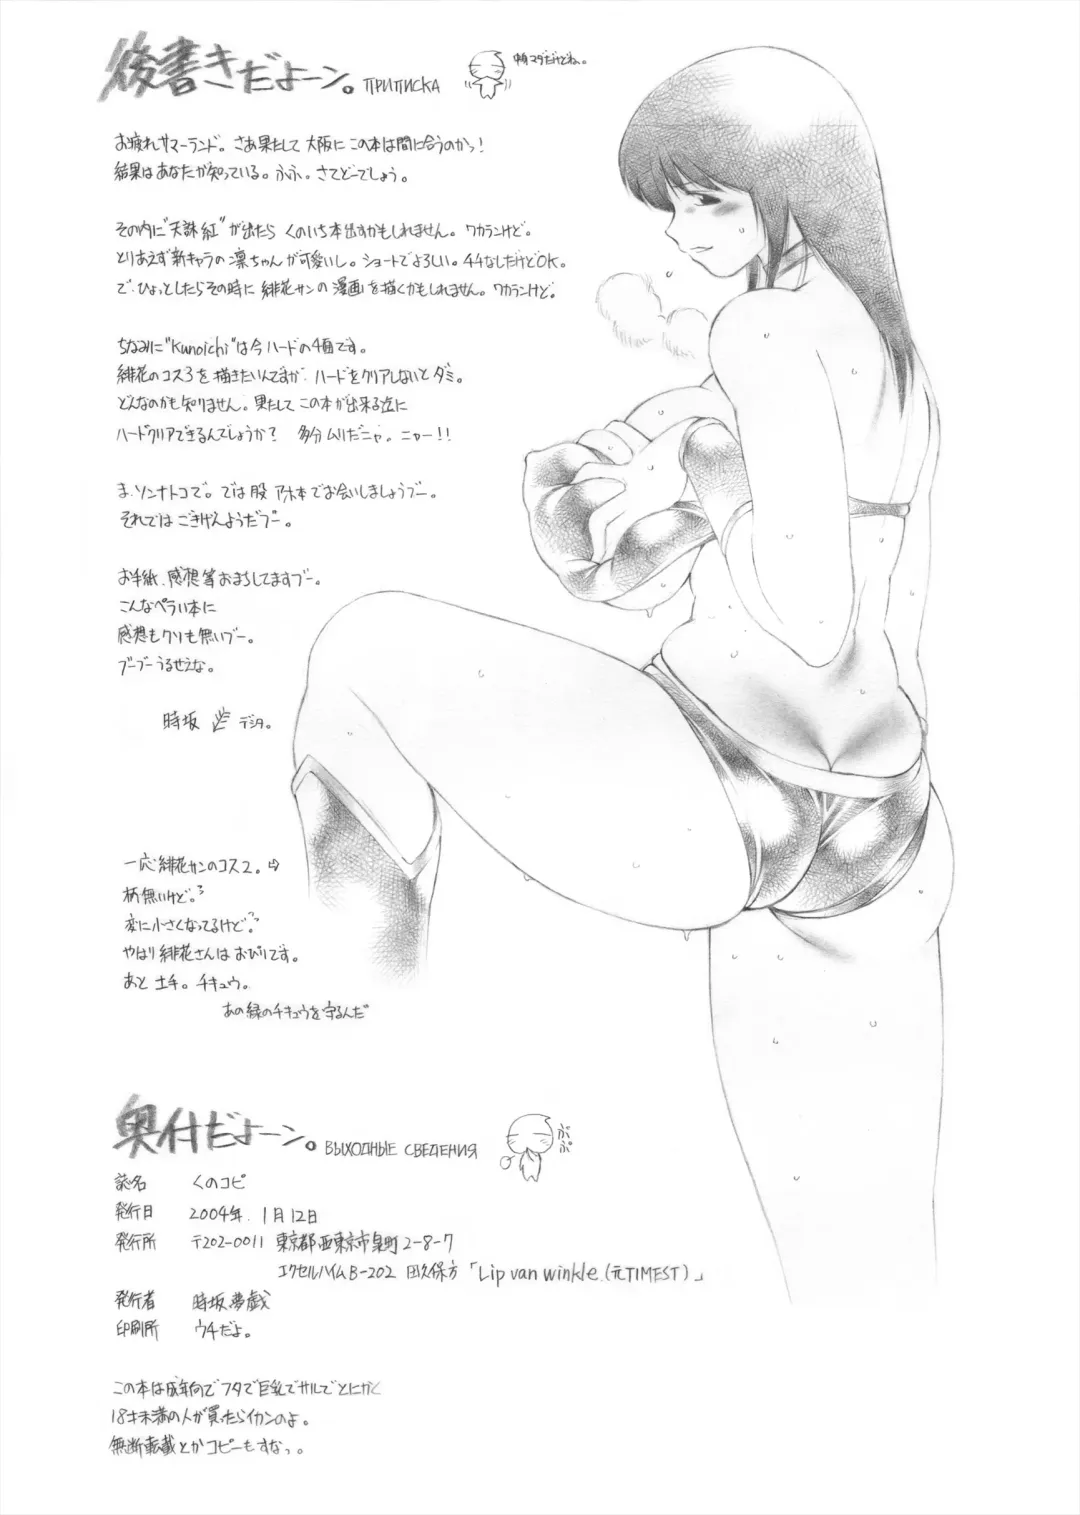 後書きだよーン。 ПРИПИСКА
中身マダだけどねぃ。
お疲れサマーランド。さあ果たして大阪にこの本は間に合うのかっ!
結果はあなたが知っている。ふふ。さてどーでしょう。
その内に"天誅 紅"が出たらくのいち本出すかもしれません。ワカランけど。
とりあえず新キャラの凛ちゃんが可愛いし。ショートでよろしい。44なしだけどOK。
で、ひょっとしたらその時に緋花サンの漫画を描くかもしれません。ワカランけど。
ちなみに"Kunoichi"は今ハードの4面です。
緋花のコス3を描きたいんですが、ハードをクリアしないとダミ。
どんなのかも知りません。果たしてこの本が出来る迄に
ハードクリアできるんでしょうか? 多分ムリだニャ。ニャー!!
ま、ソンナトコで。では股 アホ本でお会いしましょうブー。
それではごきげんようだブー。
お手紙、感想等おまちしてますブー。
こんなペラい本に
感想もクソも無いブー。
ブーブーうるせえな。
時坂 デシタ。
一応緋花サンのコス2。⇨
柄無いけど。
変に小さくなってるけど。
やはり緋花さんはおぴりです。
あと 土手。チキュウ。
あの緑のチキュウを守るんだ
奥付だよーン。 ВЫХОДНЫЕ СВЕДЕНИЯ
ぷぷ
誌名 くのコピ
発行日 2004年、1月12日
発行所 〒202-0011 東京都西東京市泉町2-8-7
エクセルハイムB-202 田久保方「Lip van winkle.(元TIMEST)」
発行者 時坂夢戯
印刷所 ウチだよ。
この本は成年向でフタで巨乳でサルでとにかく
18才未満の人が買ったらイカンのよ。
無断転載とかコピーもすなっ。